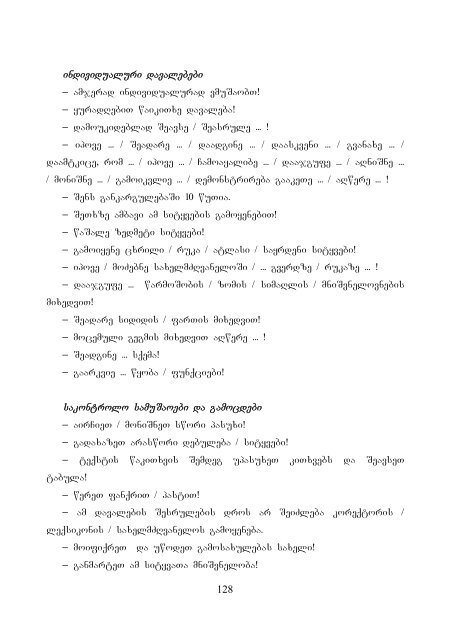 ინდივიდუალური დავალებები
– ამჯერად ინდივიდუალურად ვმუშაობთ!
– ყურადღებით წაიკითხე დავალება!
– დამოუკიდებლად შეავსე / შეასრულე ... !
– იპოვე ... / შეადარე ... / დაადგინე ... / დაასკვენი ... / გვანახე ... /
დაამტკიცე, რომ ... / იპოვე ... / ჩამოაყალიბე ... / დააჯგუფე ... / აღნიშნე ...
/ მონიშნე ... / გამოიკვლიე ... / დემონსტრირება გააკეთე ... / აღწერე ... !
– შენს განკარგულებაში 10 წუთია.
– შეთხზე ამბავი ამ სიტყვების გამოყენებით!
– წაშალე ზედმეტი სიტყვები!
– გამოიყენე ცხრილი / რუკა / ატლასი / საყრდენი სიტყვები!
– იპოვე / მოძებნე სახელმძღვანელოში / ... გვერდზე / რუკაზე ... !
– დააჯგუფე ... წარმოშობის / ზომის / სიმაღლის / მნიშვნელოვნების
მიხედვით!
– შეადარე სიდიდის / ფართის მიხედვით!
– მოცემული გეგმის მიხედვით აღწერე ... !
– შეადგინე ... სქემა!
– გაარკვიე ... წყობა / ფუნქციები!
საკონტროლო სამუშაოები და გამოცდები
– აირჩიეთ / მონიშნეთ სწორი პასუხი!
– გადახაზეთ არასწორი დებულება / სიტყვები!
– ტექსტის წაკითხვის შემდეგ უპასუხეთ კითხვებს და შეავსეთ
ტაბულა!
– წერეთ ფანქრით / პასტით!
– ამ დავალების შესრულების დროს არ შეიძლება კორექტორის /
ლექსიკონის / სახელმძღვანელოს გამოყენება.
– მოიფიქრეთ და უწოდეთ გამოსახულებას სახელი!
– განმარტეთ ამ სიტყვათა მნიშვნელობა!
128